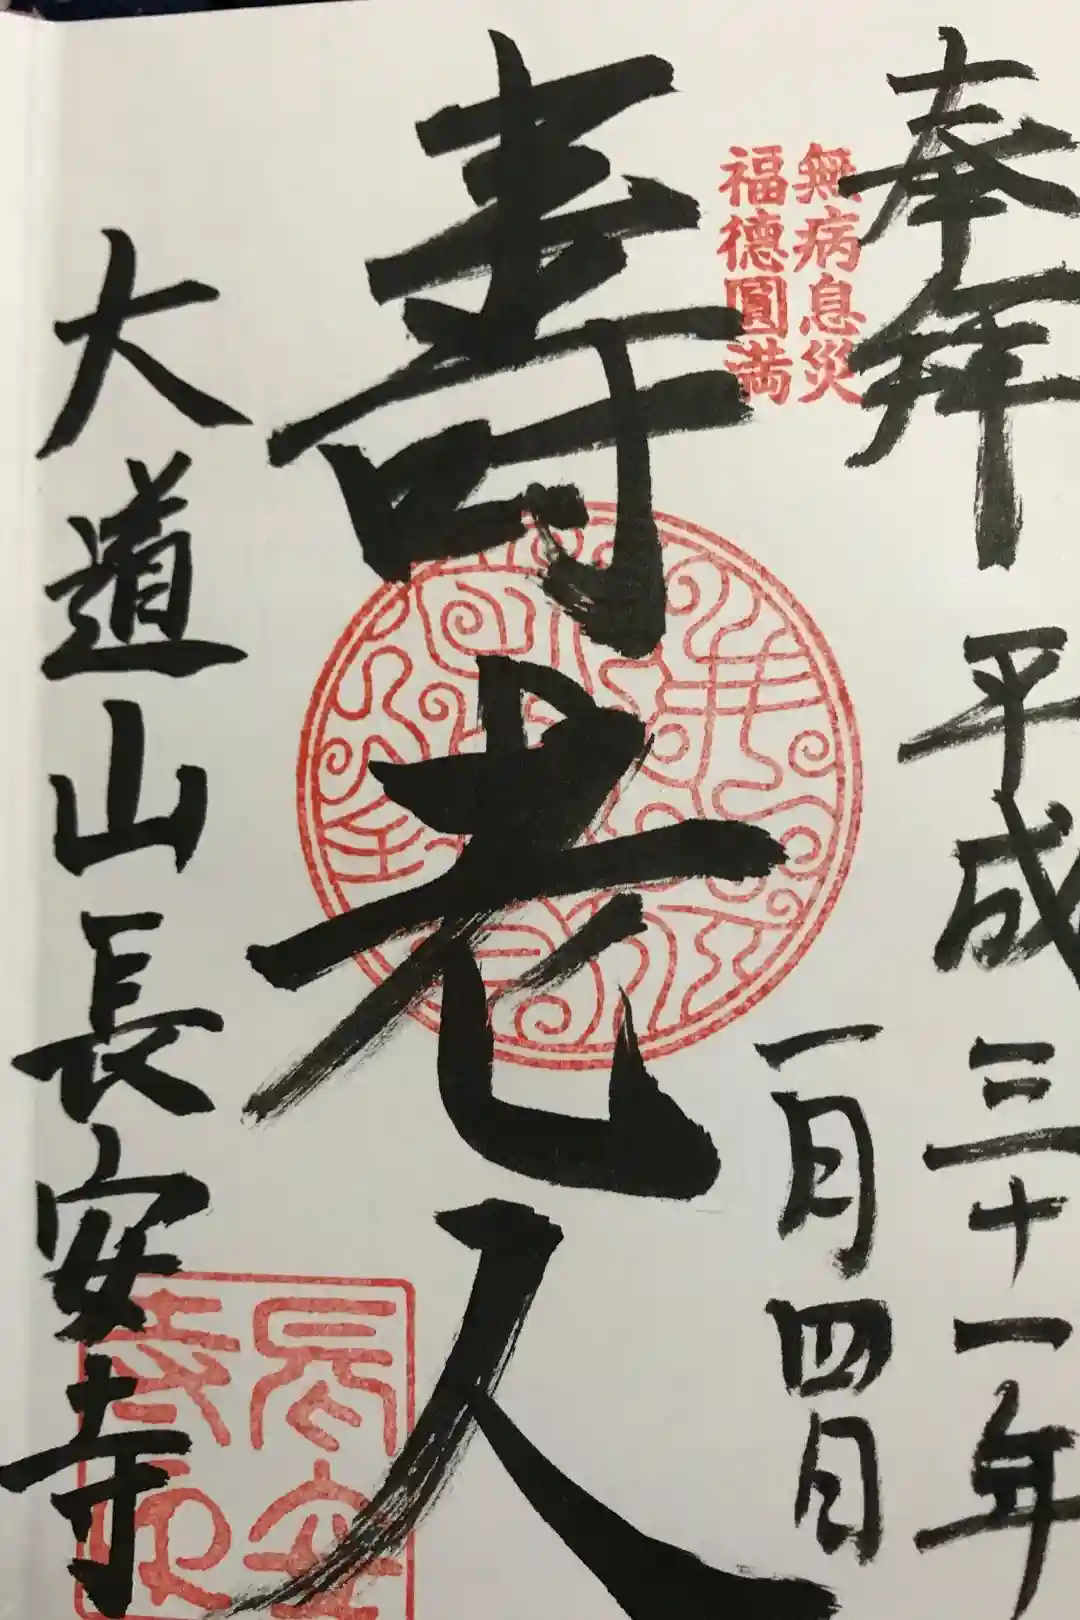 奉拝
平成三十一年
一月四日
無病息災
福徳圓満
寿老人
大道山長安寺